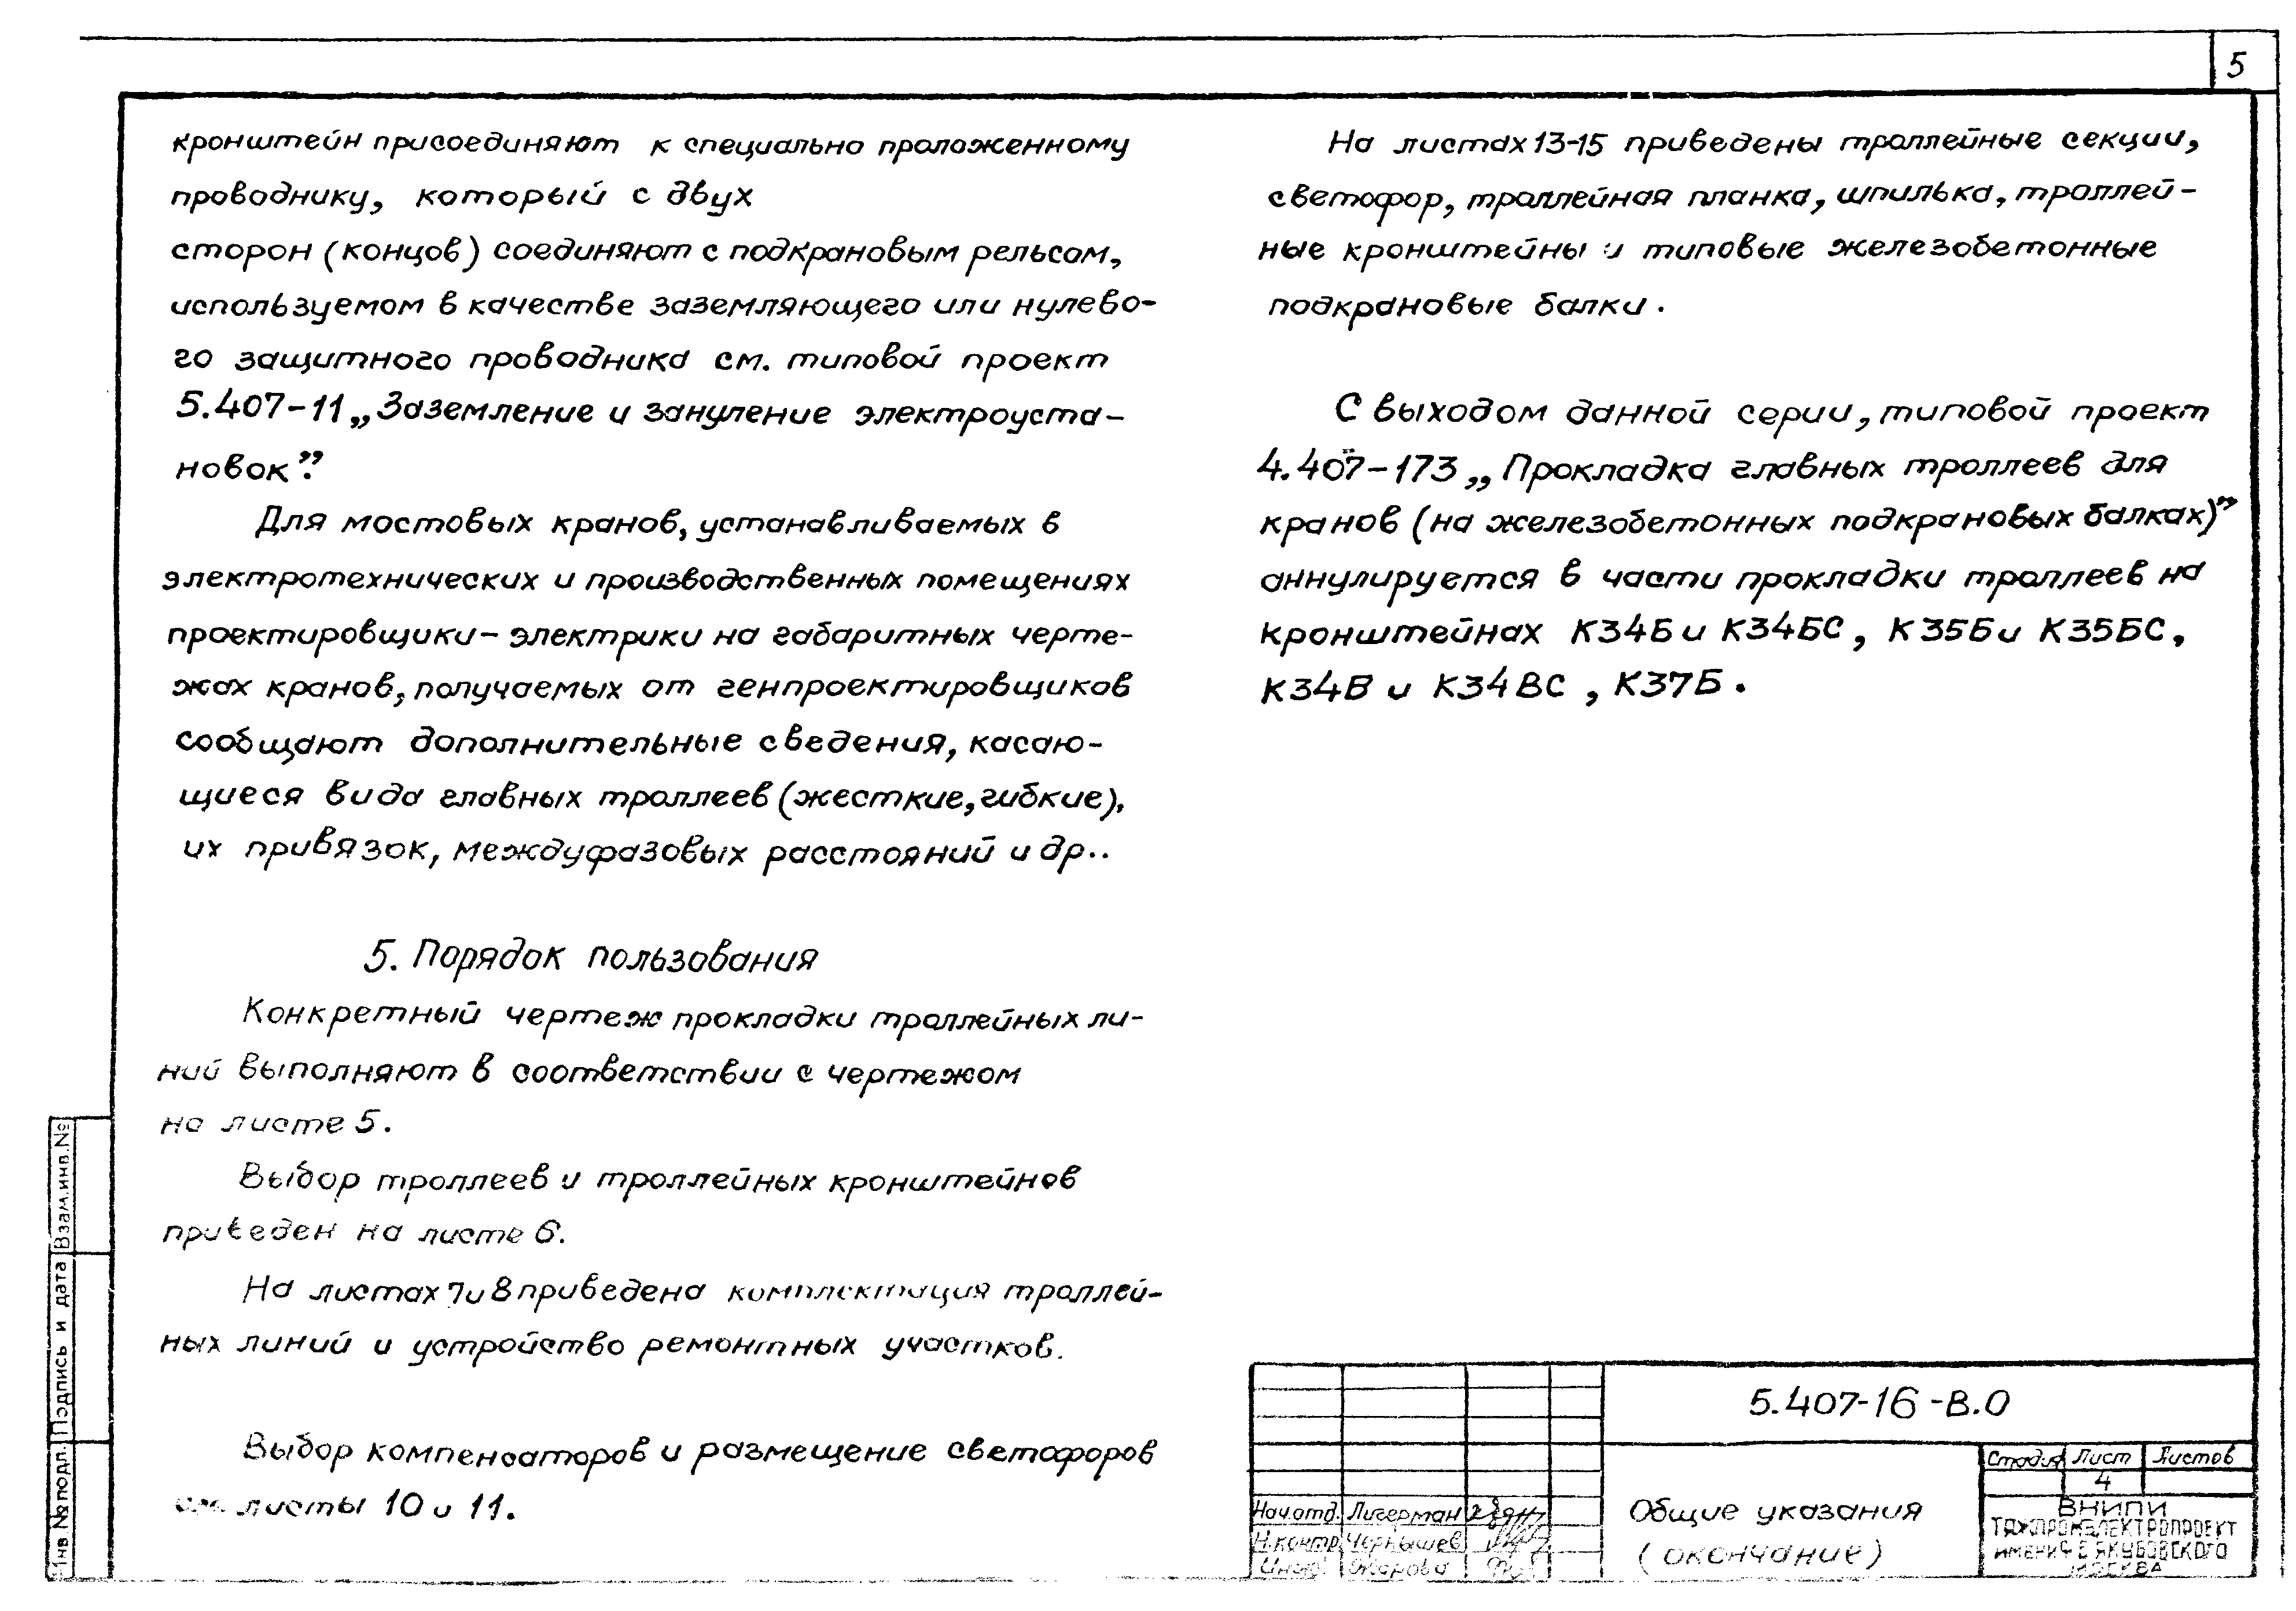 5
кронштейн присоединяют к специально проложенному
проводнику, который с двух
сторон (концов) соединяют с подкрановым рельсом,
используемом в качестве заземляющего или нулево-
го защитного проводника см. типовой проект
5.407-11 „Заземление и зануление электроуста-
новок”.
Для мостовых кранов, устанавливаемых в
электротехнических и производственных помещениях
проектировщики-электрики на габаритных черте-
жах кранов, получаемых от генпроектировщиков
сообщают дополнительные сведения, касаю-
щиеся вида главных троллеев (жесткие, гибкие),
их привязок, междуфазовых расстояний и др..
5. Порядок пользования
Конкретный чертеж прокладки троллейных ли-
ний выполняют в соответствии с чертежом
на листе 5.
Выбор троллеев и троллейных кронштейнов
приведен на листе 6.
На листах 7 и 8 приведена комплектация троллей-
ных линий и устройство ремонтных участков.
Выбор компенсаторов и размещение светофоров
см. листы 10 и 11.
На листах 13-15 приведены троллейные секции,
светофор, троллейная планка, шпилька, троллей-
ные кронштейны и типовые железобетонные
подкрановые балки.
С выходом данной серии, типовой проект
4.407-173 „Прокладка главных троллеев для
кранов (на железобетонных подкрановых балках)”
аннулируется в части прокладки троллеев на
кронштейнах К34Б и К34БС, К35Б и К35БС,
К34В и К34ВС, К37Б.
Взам.инв.№
Подпись и дата
Инв.№ подл.
5.407-16-В.0
Стадия Лист Листов
4
Нач.отд. Лигерман
Н.контр Чернышев
Инж. Жарова
Общие указания
(окончание)
ВНИПИ
ТЯЖПРОМЭЛЕКТРОПРОЕКТ
ИМЕНИ Ф Б ЯКУБОВСКОГО
МОСКВА